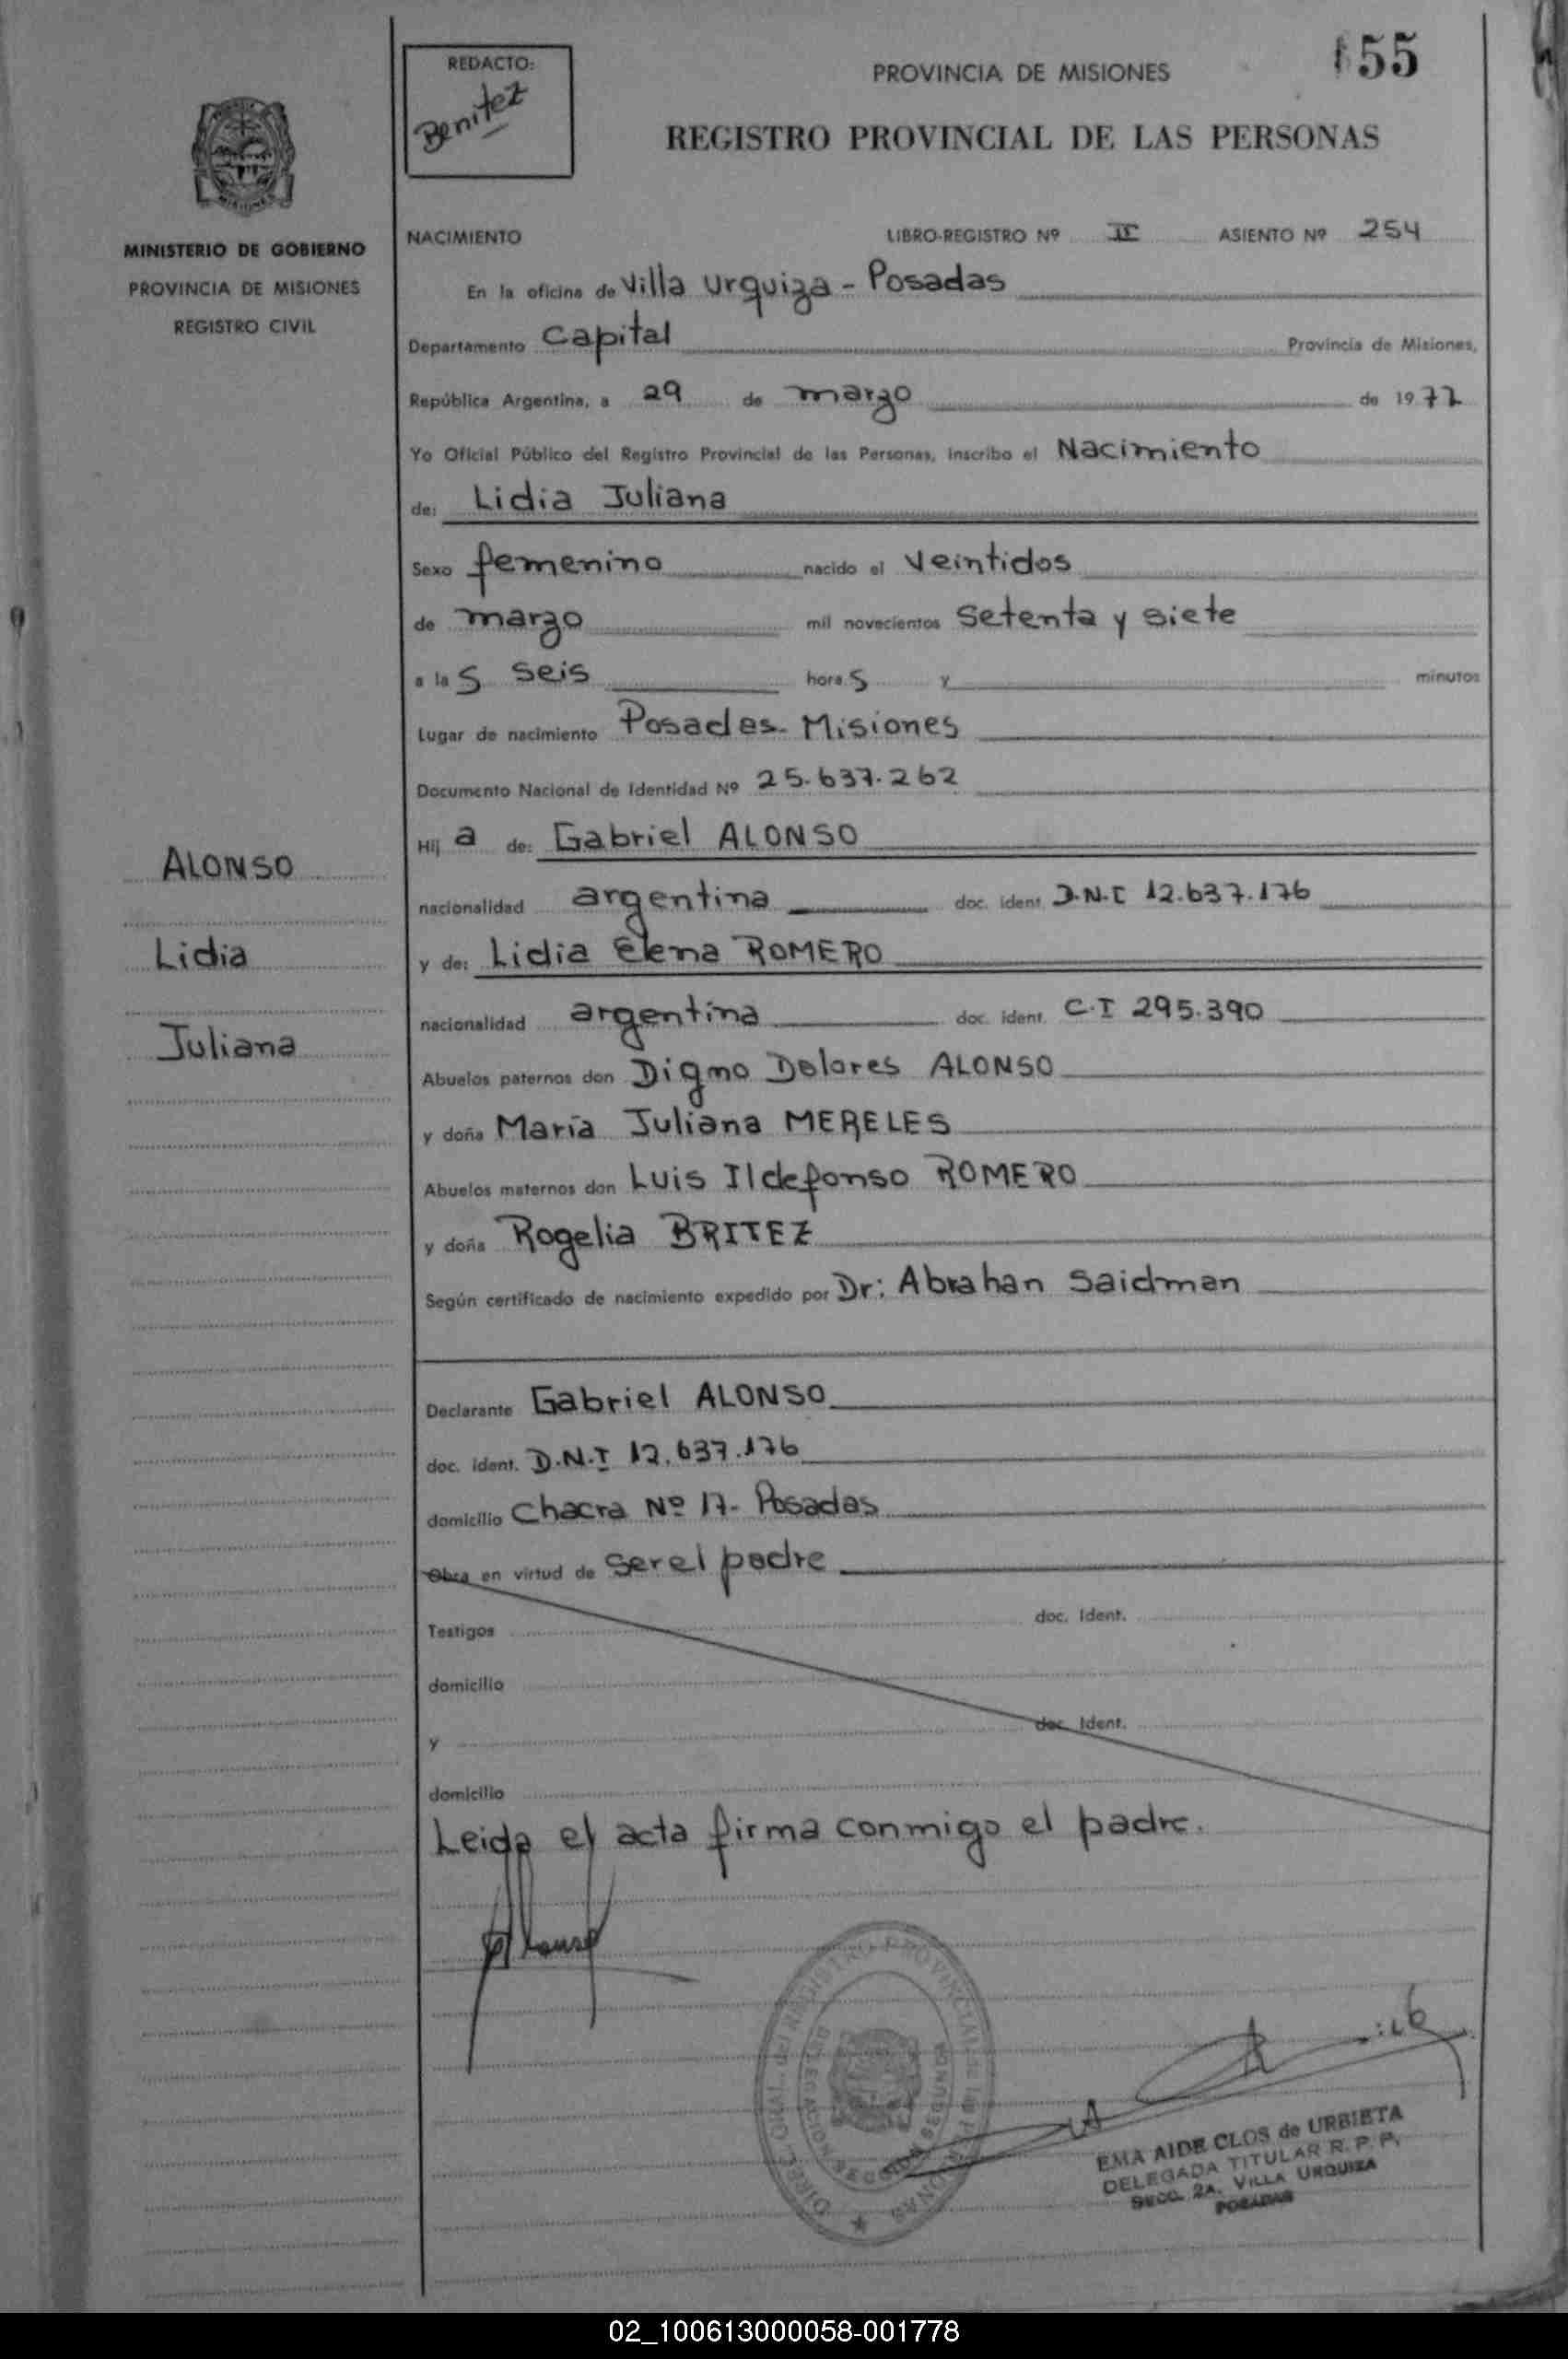 REDACTO:
Benitez
PROVINCIA DE MISIONES
155
REGISTRO PROVINCIAL DE LAS PERSONAS
MINISTERIO DE GOBIERNO
PROVINCIA DE MISIONES
REGISTRO CIVIL
NACIMIENTO LIBRO-REGISTRO Nº II ASIENTO Nº 254
En la oficina de Villa Urquiza - Posadas
Departamento Capital Provincia de Misiones,
República Argentina, a 29 de marzo de 1977
Yo Oficial Público del Registro Provincial de las Personas, inscribo el Nacimiento
de: Lidia Juliana
Sexo femenino nacido el veintidos
de marzo mil novecientos setenta y siete
a la s seis hora s y minutos
Lugar de nacimiento Posadas- Misiones
Documento Nacional de Identidad Nº 25.637.262
Hij a de: Gabriel ALONSO
nacionalidad argentina doc. ident. D.N.I 12.637.176
y de: Lidia Elena ROMERO
nacionalidad argentina doc. ident. C.I 295.390
Abuelos paternos don Digmo Dolores ALONSO
y doña María Juliana MERELES
Abuelos maternos don Luis Ildefonso ROMERO
y doña Rogelia BRITEZ
Según certificado de nacimiento expedido por Dr: Abrahan Saidman
ALONSO
Lidia
Juliana
Declarante Gabriel ALONSO
doc. ident. D.N.I 12.637.176
domicilio Chacra Nº 17- Posadas
Obra en virtud de ser el padre
Testigos doc. Ident.
domicilio
y doc. Ident.
domicilio
Leida el acta firma conmigo el padre.
Alonso
DIREC. GRAL. del REGISTRO PROVINCIAL de las PERSONAS
SECCION SEGUNDA
EMA AIDE CLOS de URBIETA
DELEGADA TITULAR R. P. P.
SECC. 2A. VILLA URQUIZA
POSADAS
02_100613000058-001778